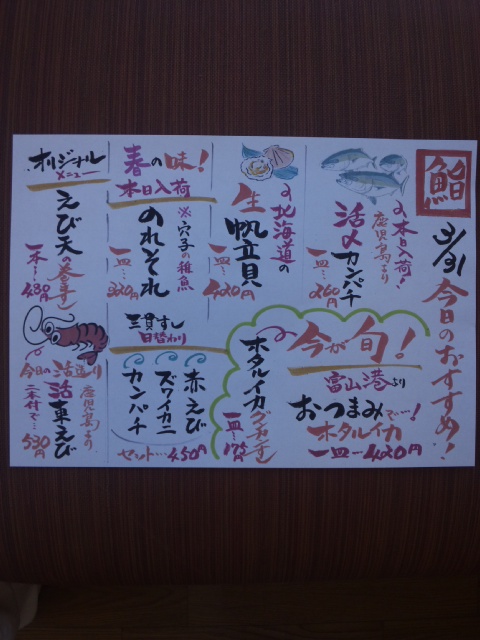 鮨
3/31
今日のおすすめ!
本日入荷!
鹿児島より
活〆カンパチ
一皿…260円
北海道の
生帆立貝
一皿…420円
春の味!
本日入荷
※穴子の稚魚
のれそれ
一皿…320円
オリジナル
メニュー
えび天の巻き
一本…480円
今が旬!
富山港より
おつまみで…!
ホタルイカ
一皿…420円
ホタルイカ
一皿…175円
三貫すし
日替わり
赤えび
ズワイカニ
カンパチ
セット…450円
今日の活造り
鹿児島より
活車えび
二本付で…
530円